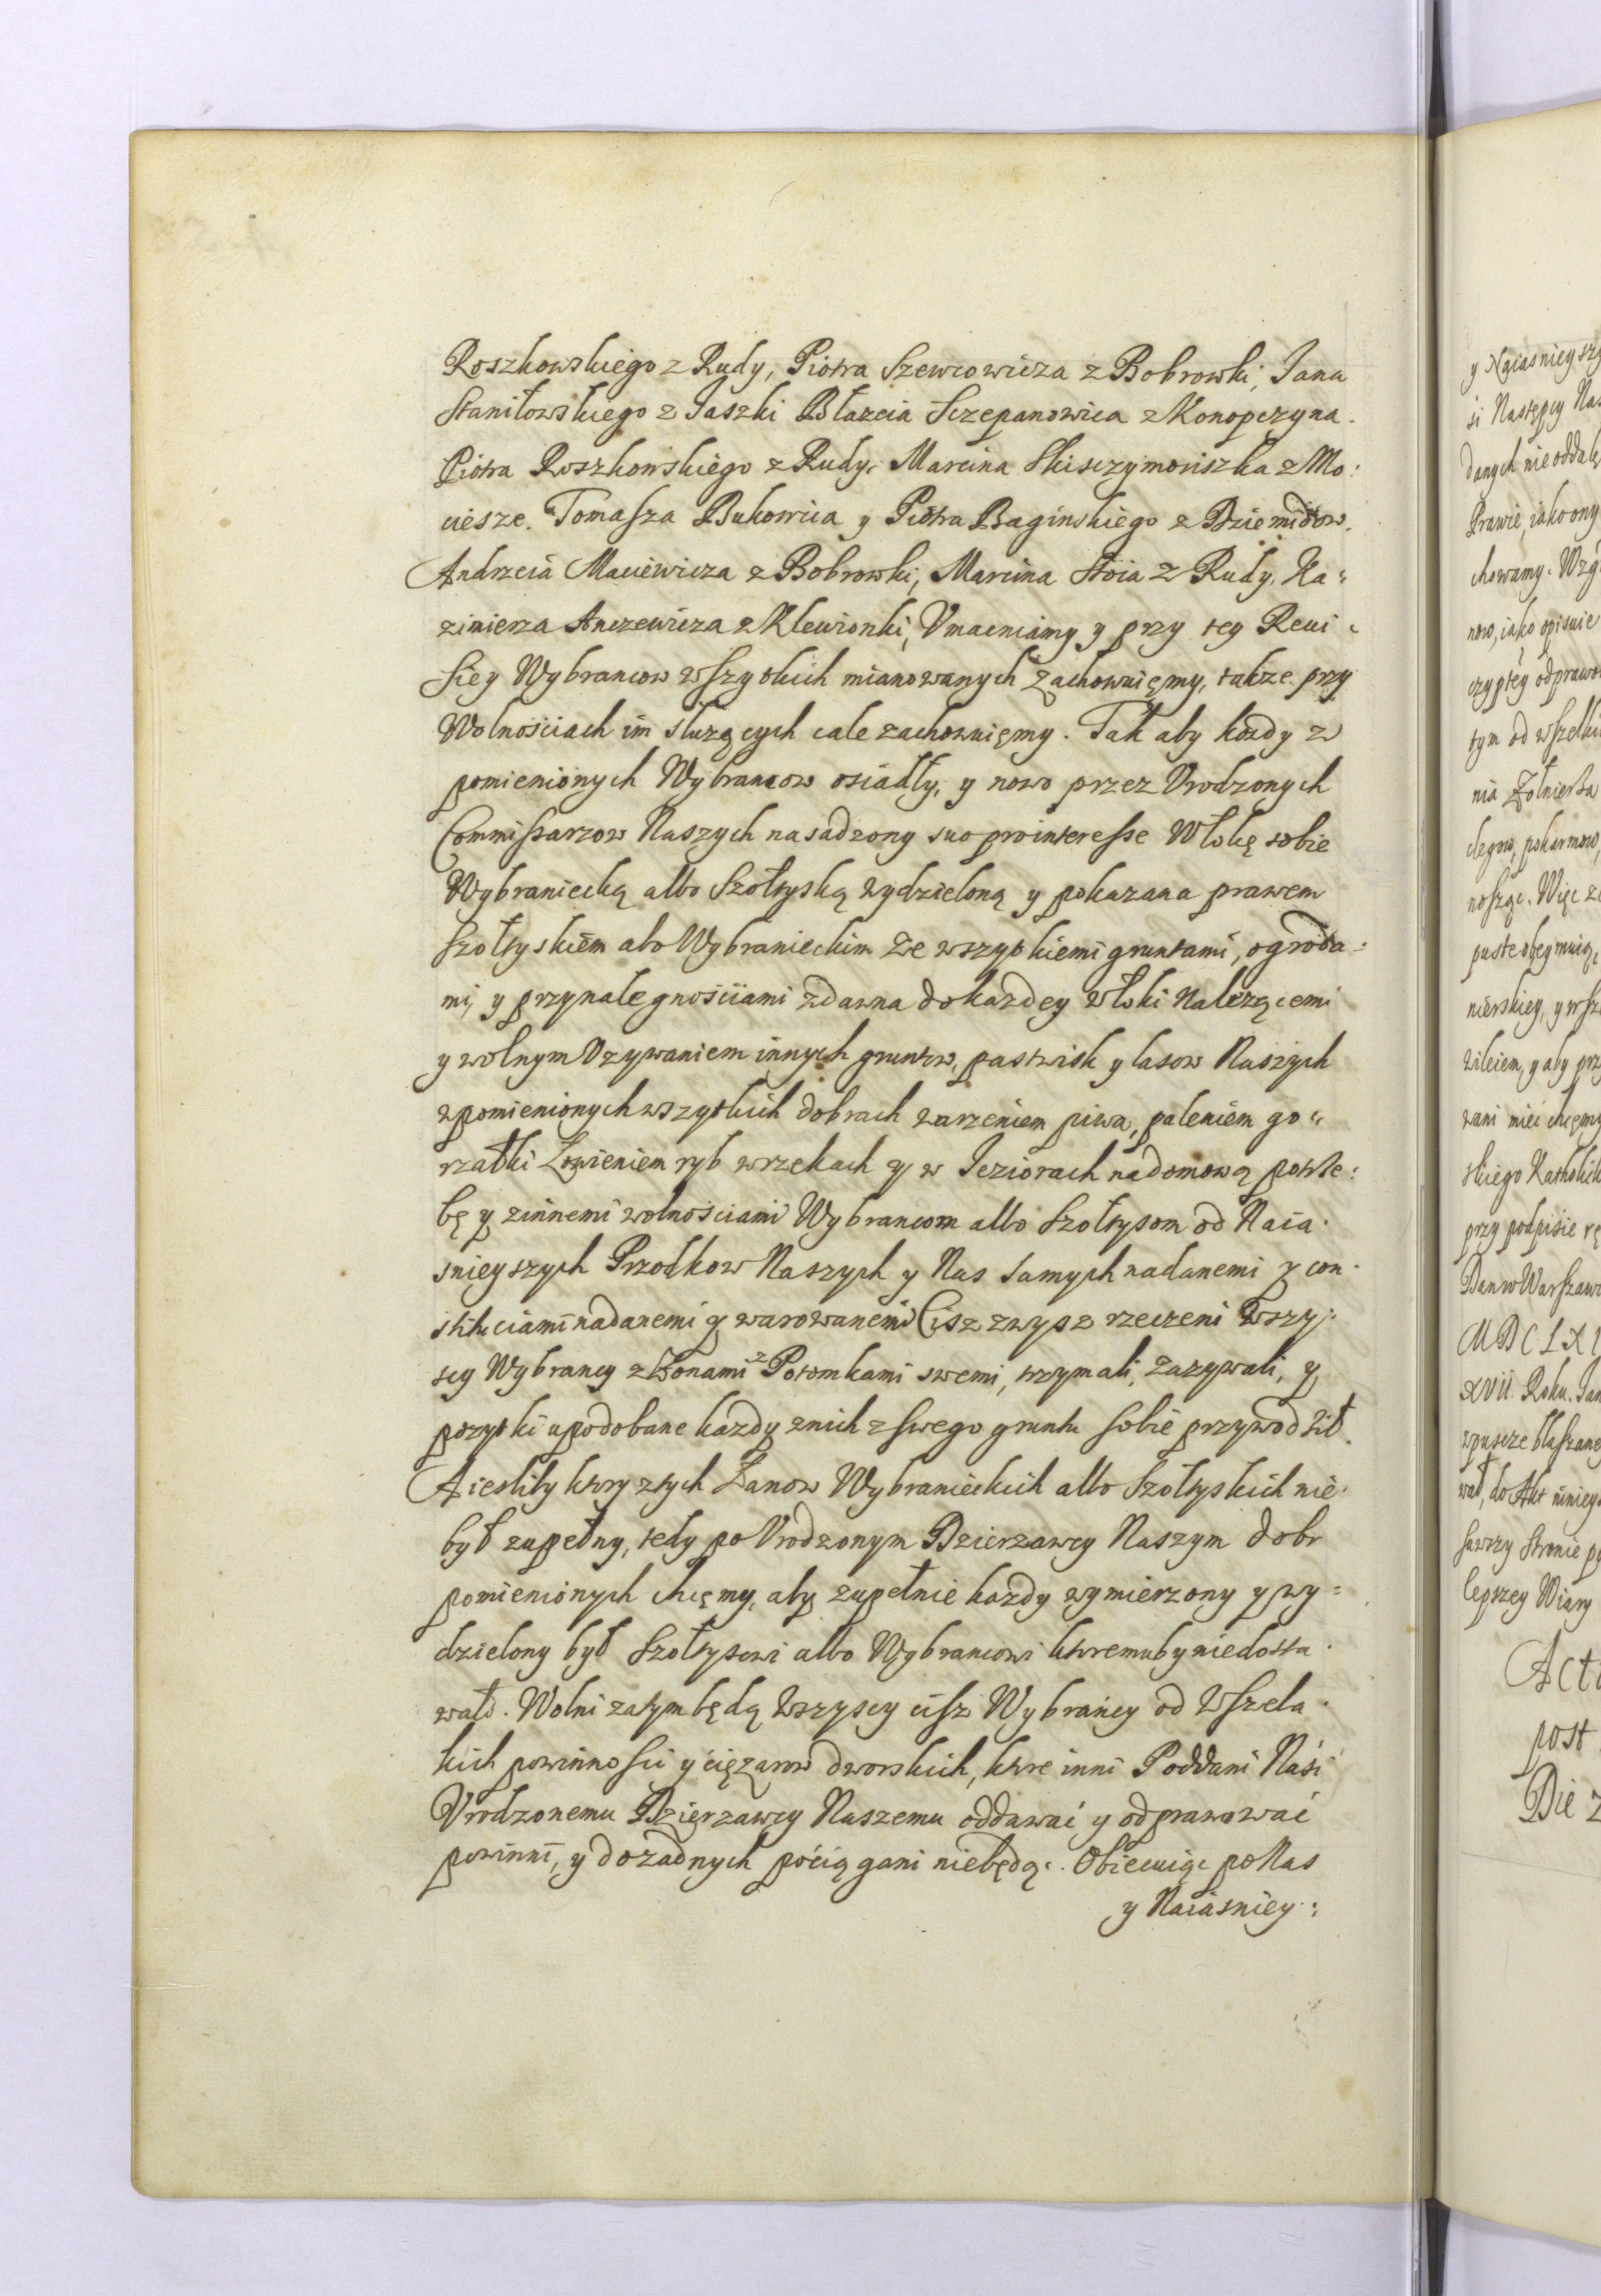 Roszkowskiego z Rudy, Piotra Szewcowicza z Bobrowki, Jana
Staniłowskiego z Jaszki Błazeia Sczepanowica z Konopczyna.
Piotra Roszkowskiego z Rudy, Marcina Skisczymoriszka z Mo:
ciesze. Tomasza Bukowica y Piotra Baginskiego z Dziemidow.
Andrzeia Maciewicza z Bobrowki, Marcina Stoia z Rudy, Ka:
zimierza Anczewicza z Klewionki, Vmacniamy y przy tey Reui:
siey Wybrancow wszytkich mianowanych zachowuięmy, także przy
Wolnościach im służących cale zachowuięmy. Tak aby kozdy z
pomienionych Wybrancow osiadły, y nowo przez Vrodzonych
Commissarzow Naszych nasadzony suo prointeresse Włokę sobie
Wybraniecką albo Szołtyską wydzieloną y pokazana prawem
szołtyskiem abo Wybranieckim ze wszytkiemi gruntami, ogroda:
mi, y przynalegnościiami zdawna do kazdey włoki Nalezącemi
y wolnym Vzywaniem innych gruntow, pastwisk y lasow Naszych
w pomienionych wszytkich dobrach warzeniem piwa, paleniem go:
rzałki Łowieniem ryb w rzekach y w Jeziorach na domową potrze:
bę y zinnemi wolnościami Wybrancom albo Szołtysom od Naia:
snieyszych Przodkow Naszych y Nas samych nadanemi y con:
stituciami nadanemi y warowanemi Cisz zwysz rzeczeni Wszy:
scy Wybrancy z Zonami z Potomkami swemi, trzymali, zazywali, y
pozytki upodobane kazdy znich z swego gruntu sobie przywodził.
A iesliby ktory ztych Łanow Wybranieckich albo Szołtyskich nie:
był zupełny, tedy po Vrodzonym Dzierzawcy Naszym dobr
pomienionych chcęmy, aby zupełnie kazdy wymierzony y wy:
dzielony był Szołtysowi albo Wybrancowi ktoremuby niedosta:
wało. Wolni zatym będą Wszyscy cisz Wybrańcy od Wszela:
kich powinnosci y ciężarow dworskich, ktore inni Poddani Naśi
Vrodzonemu Dzierzawcy Naszemu oddawać y odprawować
powinni, y do zadnych pociągani niebędąc. Obiecuiąc po Nas
y Naiasniey:
y Naiasnieyszy
si Następcy Nas
danych nie oddalę
Prawie, iako ony
chowamy. Wzg
now, iako opisuie
tym od wszelki
nia Żołnierza
clegow, pokarmow,
nosząc. Więc
puste obeymuią
nierskiey, y wsz
wileiem, y aby prz
wani mieć chcęmy
skiego Katholick
przy podpisie rę
Dan w Warszaw
MDCLX
XVII. Roku. Jan
w puszce blaszaney
wał, do Akt niniey
lepszey Wiary
Acta
post
Die